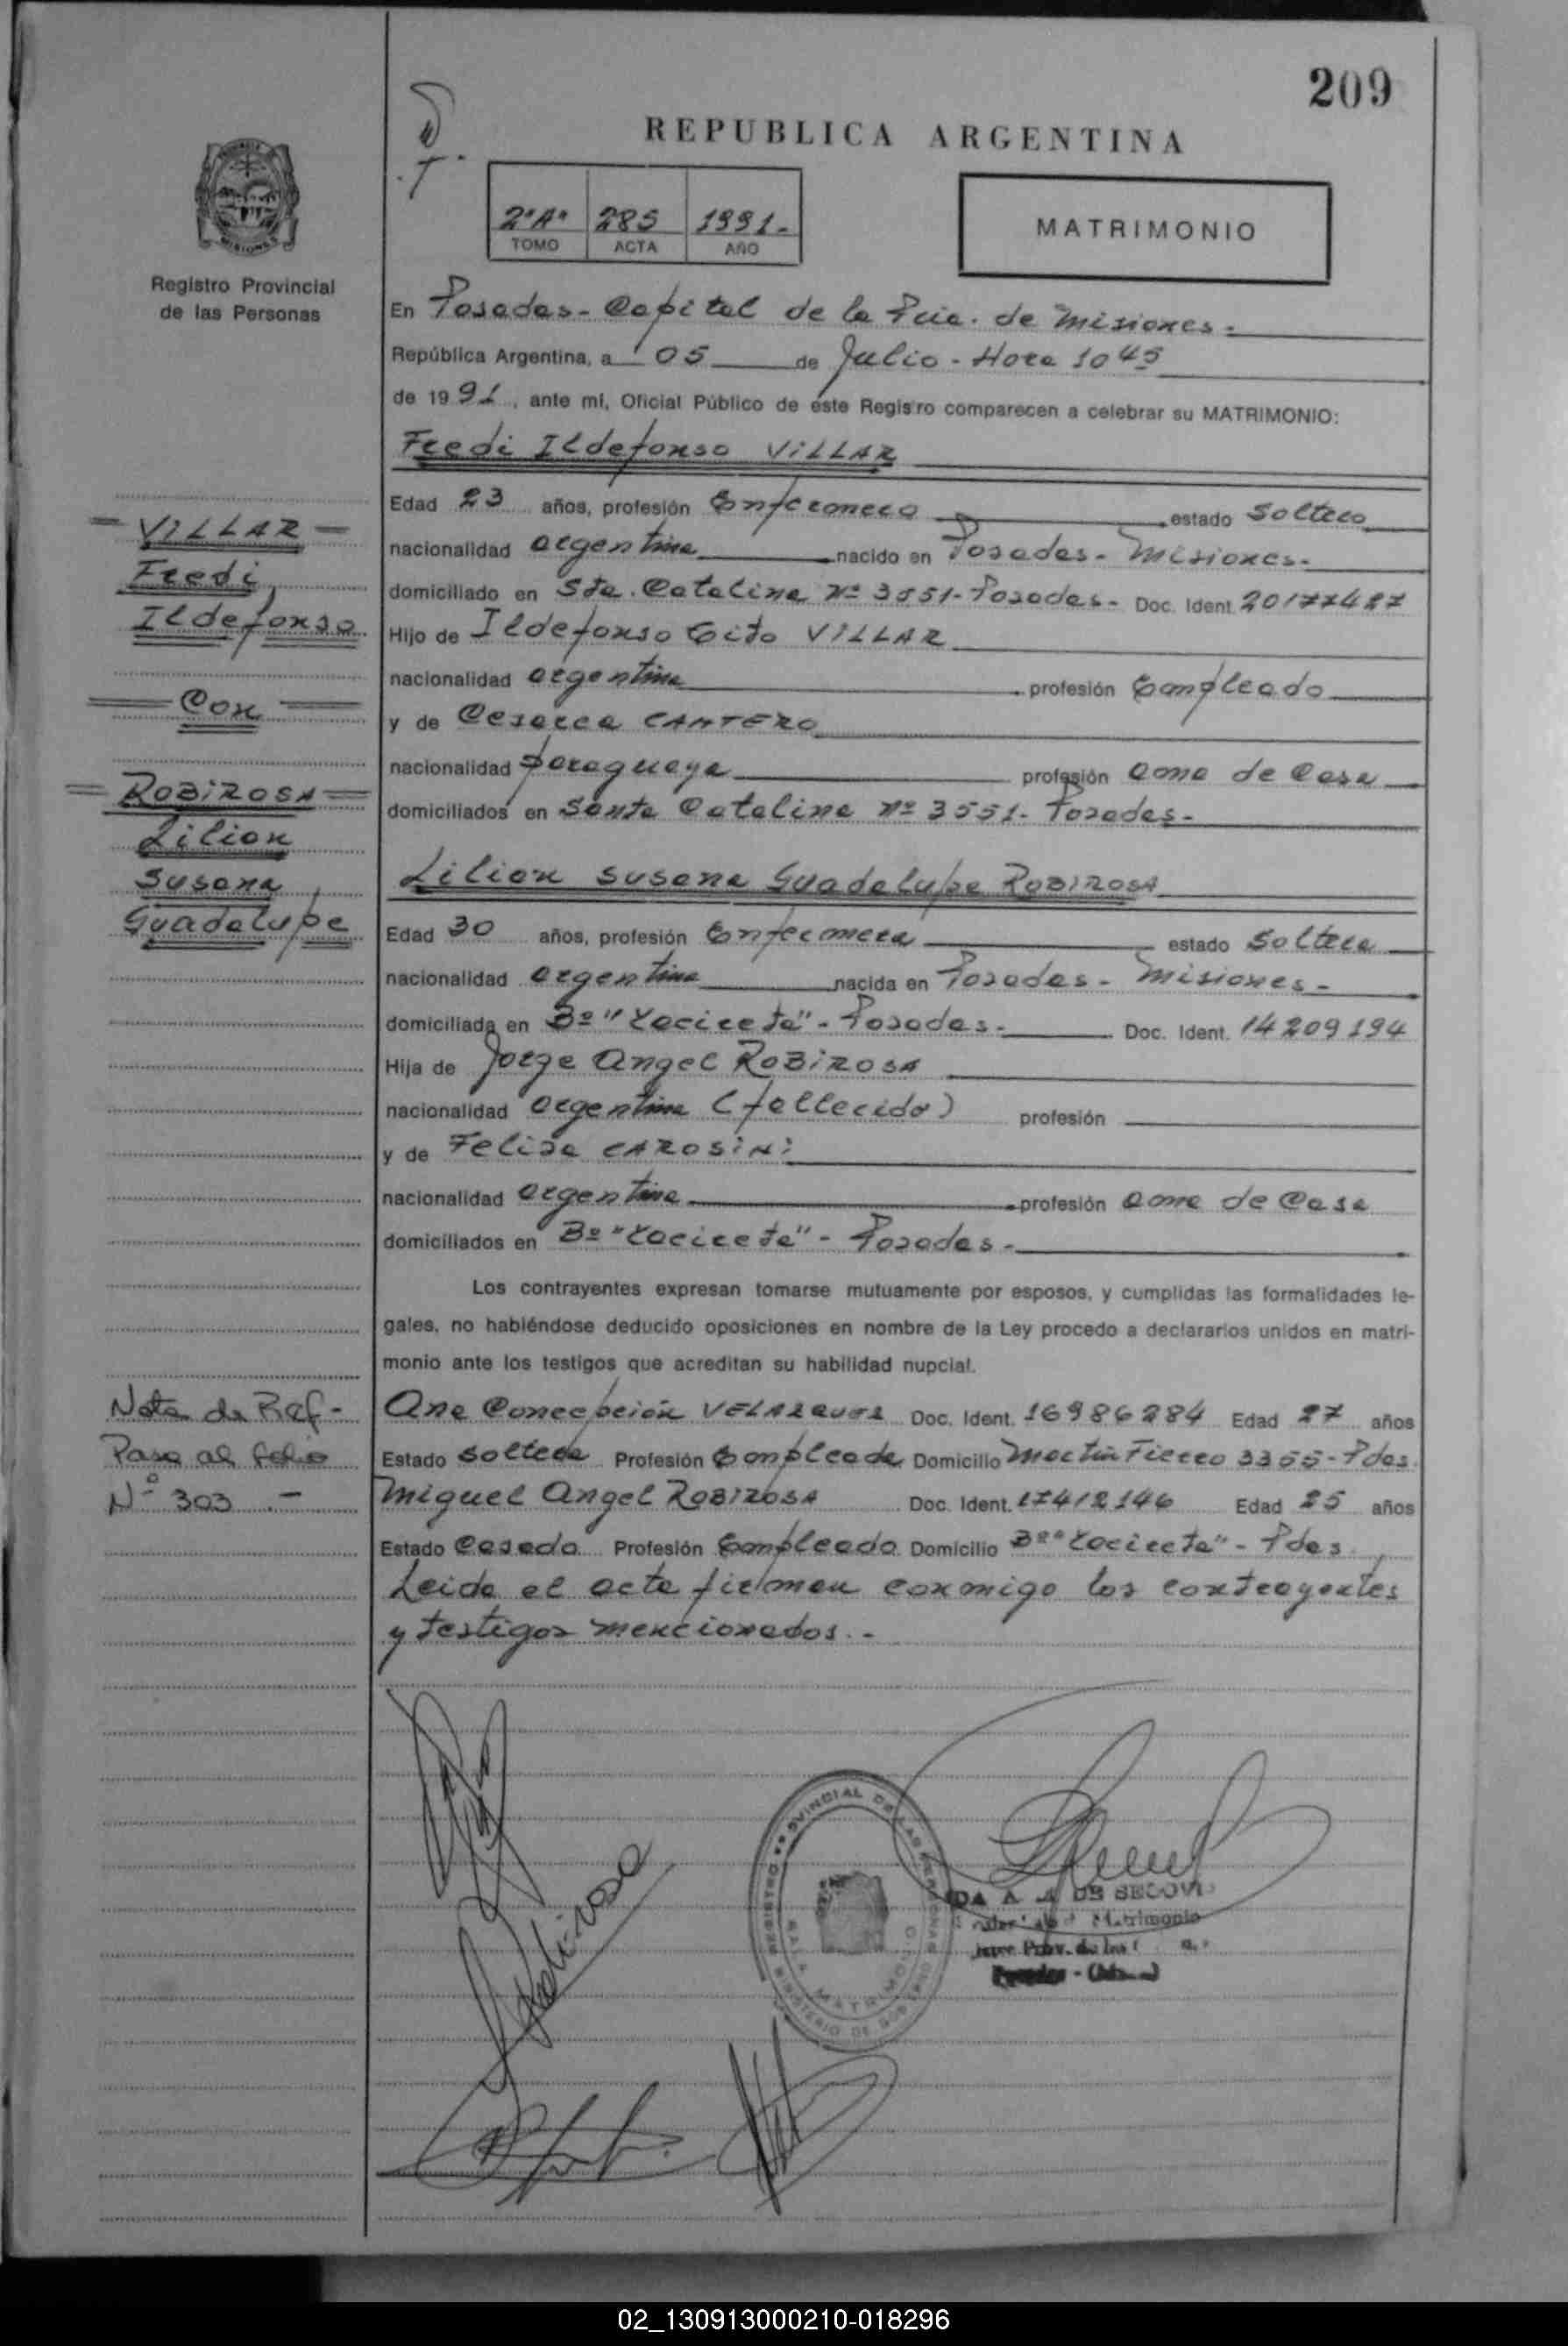 209
REPUBLICA ARGENTINA
2ºAº 285 1991.-
TOMO ACTA AÑO
MATRIMONIO
MISIONES
Registro Provincial
de las Personas
En Posadas - Capital de la Pcia. de Misiones.-
República Argentina, a 05 de Julio - Hora 1045
de 1991, ante mí, Oficial Público de este Registro comparecen a celebrar su MATRIMONIO:
Fredi Ildefonso VILLAR
Edad 23 años, profesión Enfermero estado Soltero
nacionalidad argentina nacido en Posadas - Misiones.-
domiciliado en Sta. Catalina Nº 3551 - Posadas - Doc. Ident. 20177487
Hijo de Ildefonso Cito VILLAR
nacionalidad argentina profesión Empleado
y de Cesarea CANTERO
nacionalidad paraguaya profesión ama de Casa
domiciliados en Santa Catalina Nº 3551 - Posadas -
Lilian Susana Guadalupe ROBIROSA
Edad 30 años, profesión Enfermera estado Soltera
nacionalidad argentina nacida en Posadas - Misiones -
domiciliada en Bº "Yacireta" - Posadas - Doc. Ident. 14209194
Hija de Jorge Angel ROBIROSA
nacionalidad argentina (fallecido) profesión
y de Felisa CAROSINI
nacionalidad argentina profesión ama de Casa
domiciliados en Bº "Yacireta" - Posadas -
Los contrayentes expresan tomarse mutuamente por esposos, y cumplidas las formalidades le-
gales, no habiéndose deducido oposiciones en nombre de la Ley procedo a declararlos unidos en matri-
monio ante los testigos que acreditan su habilidad nupcial.
Ana Concepción VELAZQUEZ Doc. Ident. 16986284 Edad 27 años
Estado Soltera Profesión Empleada Domicilio Martín Fierro 3355 - Pdas.
Miguel Angel ROBIROSA Doc. Ident. 17412146 Edad 25 años
Estado Casado Profesión Empleado Domicilio Bº "Yacireta" - Pdas.
Leida el acta firman conmigo los contrayentes
y testigos mencionados.-
= VILLAR =
Fredi
Ildefonso
= Con =
= ROBIROSA =
Lilian
Susana
Guadalupe
Nota de Ref-
Pasa al folio
Nº 303.-
Robirosa
REGISTRO PROVINCIAL DE LAS PERSONAS
SALA MATRIMONIO
MINISTERIO DE GOBIERNO
DE SEGOVIA
Matrimonio
Prov. de las
Posadas - (Mnes.)
02_130913000210-018296